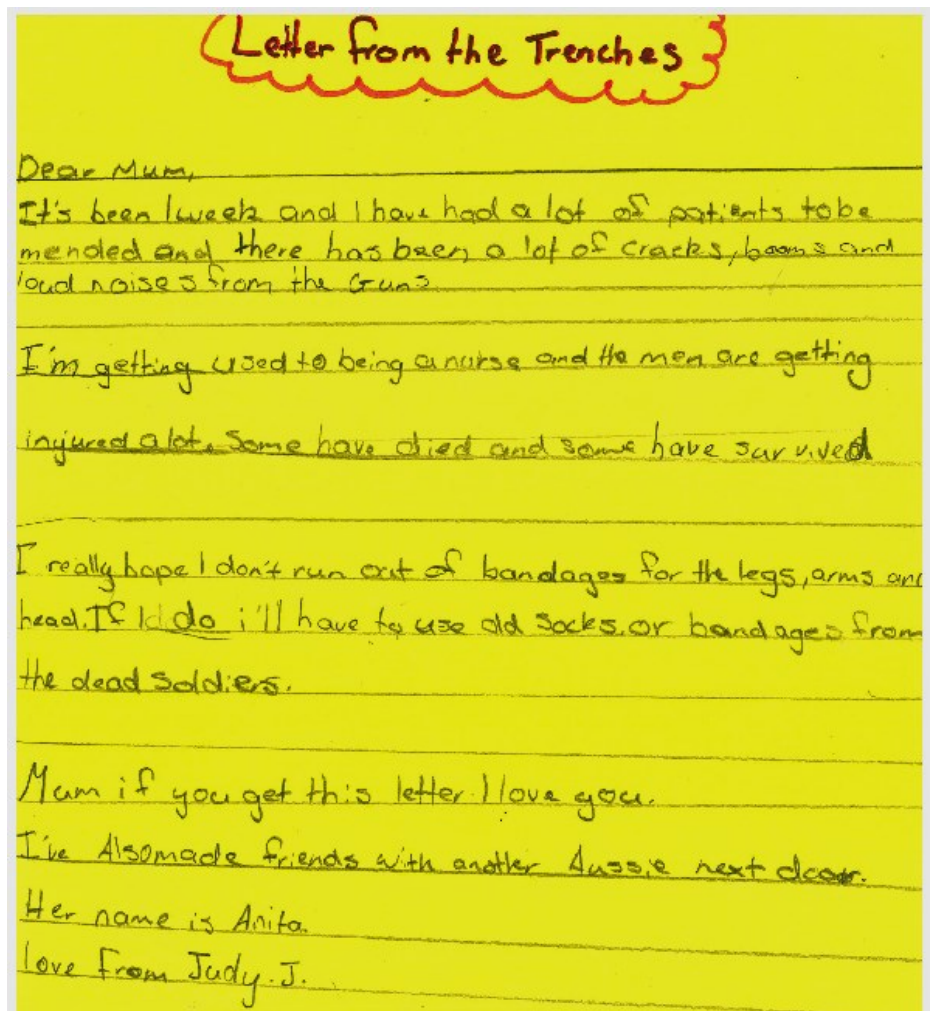 Letter from the Trenches
Dear Mum,
It's been 1 week and I have had a lot of patients to be
mended and there has been a lot of cracks, booms and
loud noises from the Guns.
I'm getting used to being a nurse and the men are getting
injured a lot. Some have died and some have survived
I really hope I don't run out of bandages for the legs, arms and
head. If I do i'll have to use old socks. or bandages from
the dead soldiers.
Mum if you get this letter. I love you.
I've Also made friends with another Aussie next door.
Her name is Anita.
love from Judy. J.